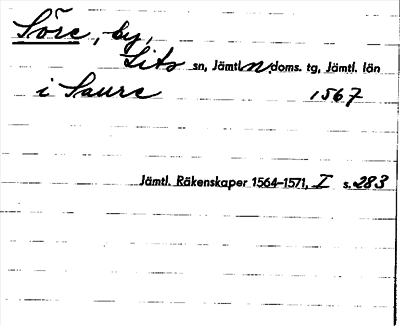 Söre, by,
Lits sn, Jämtl. n. doms. tg, Jämtl. län
i Saurc 1567
Jämtl. Räkenskaper 1564–1571, I s. 283